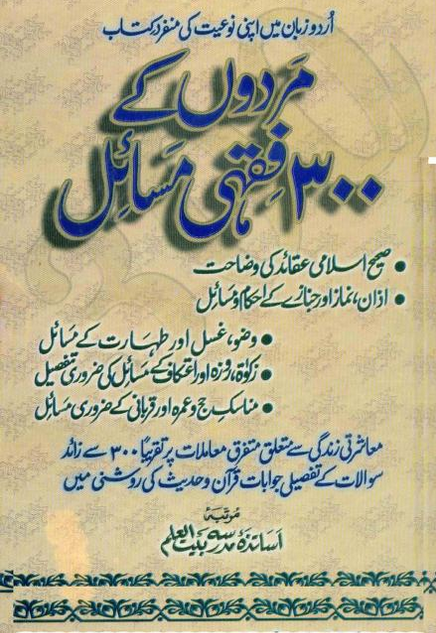 اُردو زبان میں اپنی نوعیت کی منفرد کتاب
مَردوں کے
۳۰۰ فِقہی مسَائِل
• صحیح اسلامی عقائد کی وضاحت
• اذان، نماز اور جنازے کے احکام و مسَائل
• وضو، غسل اور طہارت کے مسَائل
• زکوٰۃ، روزہ اور اعتکاف کے مسَائل کی ضروری تفصیل
• مناسکِ حج و عمرہ اور قربانی کے ضروری مسَائل
معاشرتی زندگی سے متعلق متفرق معاملات پر تقریباً ۳۰۰ سے زائد
سوالات کے تفصیلی جوابات قرآن و حدیث کی روشنی میں
مُرتبہ
اسَاتذۂ مدرسہ بیتُ العِلم